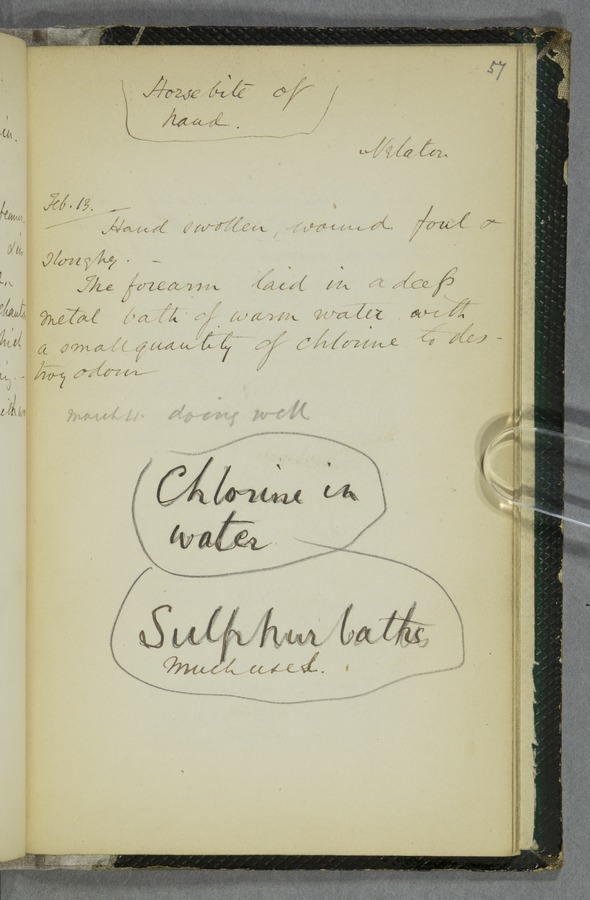 57
Horse bite of
hand.
Nelaton
Feb. 13. -
Hand swollen, wound foul &
sloughy. -
The forearm laid in a deep
metal bath of warm water with
a small quantity of chlorine to des-
troy odour
March doing well
Chlorine in
water
Sulphur baths
much used.